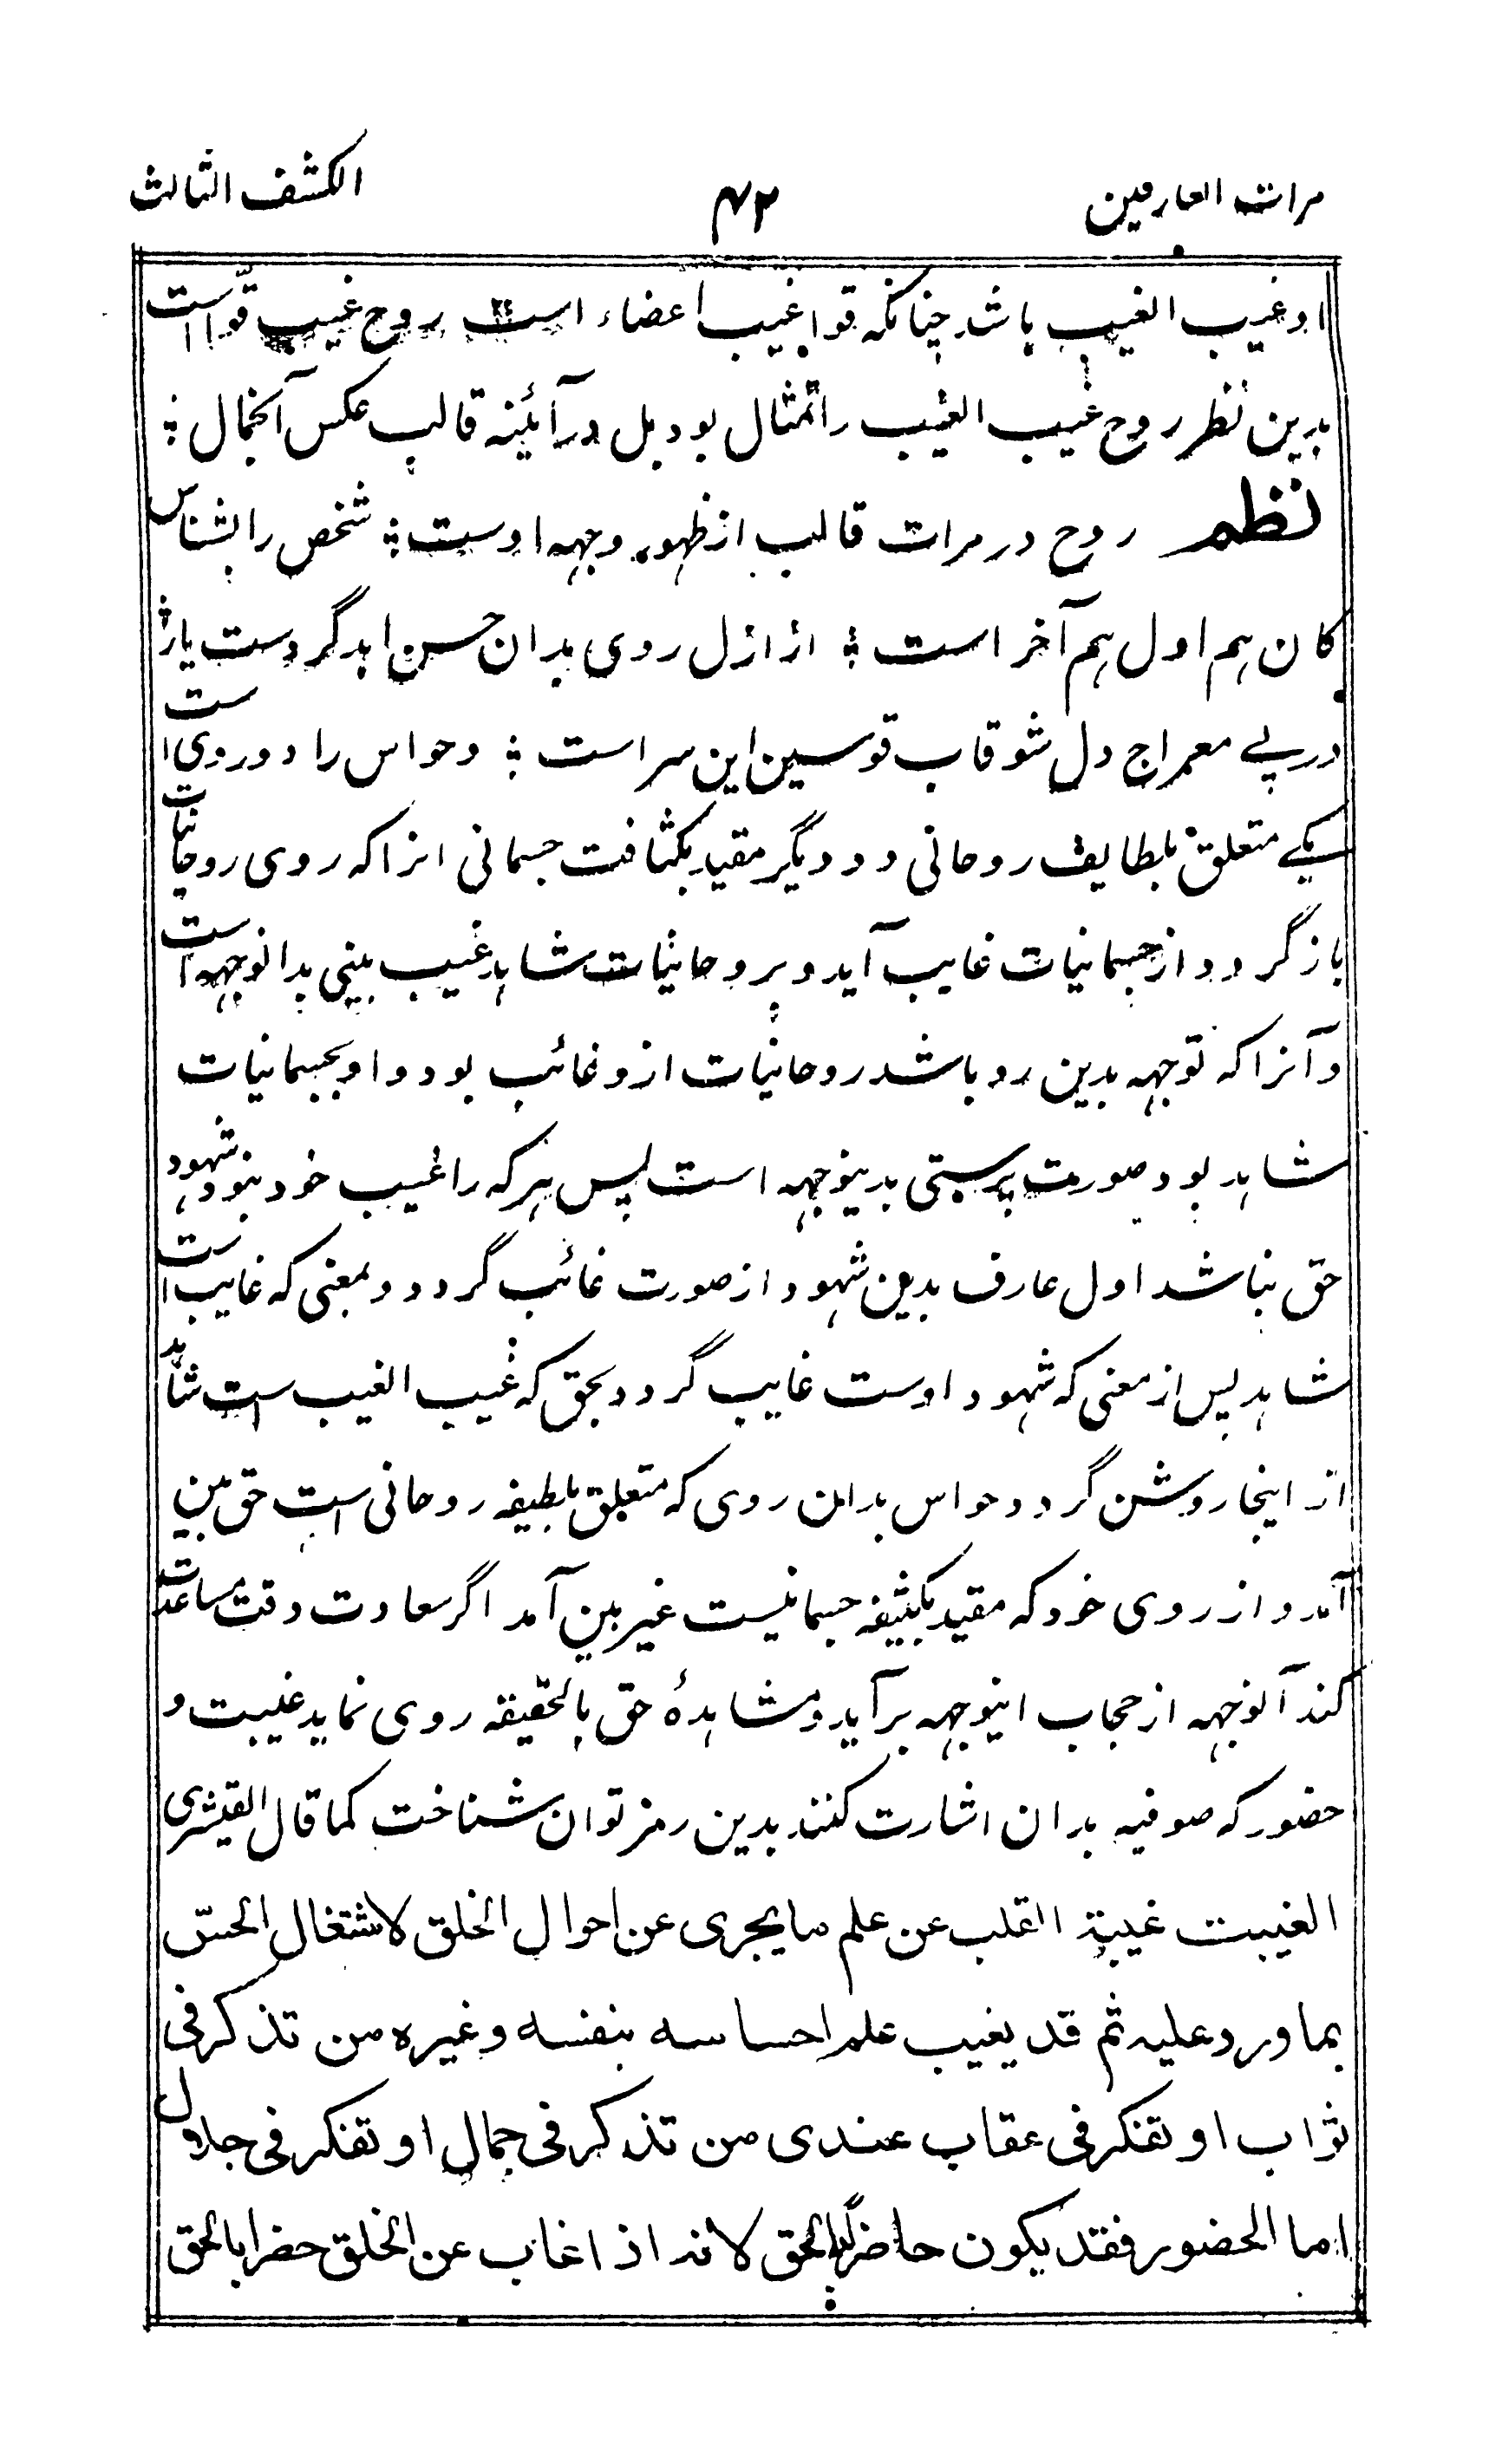 مرات العارفین ۴۲ الکشف الثالث
او غیب الغیب باشد چنانکه قوا غیب اعضاء است روح غیب قوّا است
بدین نظر روح غیب الغیب را تمثال بود بل در آئینه قالب عکس آنجمال ؛
نظم روح در مرات قالب از ظهور وجهه اوست ؛ شخص را بشناس
کان ہم اول ہم آخر است ؛ از ازل روی بدان حسن ابد گر دست یاز ؛
در پے معراج دل شو قاب قوسین این سراست ؛ و حواس را دو روی است
یکے متعلق بلطایف روحانی و دیگر مقید بکثافت جسمانی انرا که روی روحانیات
باز گردد از جسمانیات غایب آید و بروحانیات شاہد غیب بینی بدانوجہہ است
و آنرا که توجہہ بدین رو باشد روحانیات ازو غائب بود و او بجسمانیات
شاہد بود صورت پرستی بدینوجہہ است پس ہرکه را غیب خود نبود شہود
حق نباشد اول عارف بدین شہود از صورت غائب گردد و بمعنی که غایب است
شاہد پس از معنی که شہود اوست غایب گردد بحق که غیب الغیب است شاہد
از اینجا روشن گردد حواس بدان روی که متعلق بلطیفه روحانی است حق بین
آمد و از روی خرد که مقید بکثیفه جسمانیست غیر بین آمد اگر سعادت وقت مساعدت
کند آنوجہہ از حجاب اینوجہہ برآید و مشاہدۂ حق بالحقیقه روی نماید غیبت و
حضور که صوفیه بدان اشارت کنند بدین رمز توان شناخت کما قال القیشری
الغیبت غیبة القلب عن علم ما یجری عن احوال الخلق لاشتغال الحسّ
بما ورد علیه ثم قد یغیب علم احساسه بنفسه وغیره من تذکر فی
ثواب او تفکر فی عقاب عندی من تذکر فی جمال او تفکر فی جلال
اما الحضور فقد یکون حاضراً بالحق لانه اذا غاب عن الخلق حضر بالحق